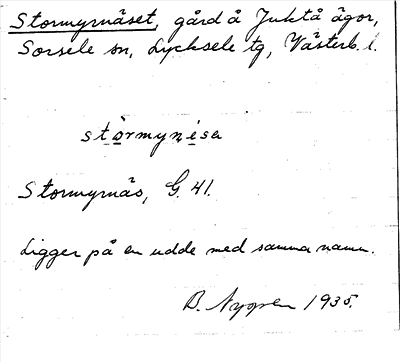 Stormyrnäset, gård å Juktå ägor,
Sorsele sn, Lycksele tg, Västerb. l.
stòrmyṇisa
Stormyrnäs, G. 41.
Ligger på en udde med samma namn.
B. Nygren 1935.